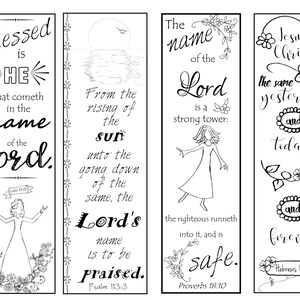 essed
is
HE
that cometh
in the
name
of the
Lord.
From the
rising of
the
sun
unto the
going down
of the
same, the
Lord's
name
is to be
praised.
Psalm 113:3
The
name
of the
Lord
is a
strong tower:
the righteous runneth
into it, and is
safe.
Proverbs 18:10
Jesus
Christ
The same
yesterday
and
today
and
forever
Hebrews